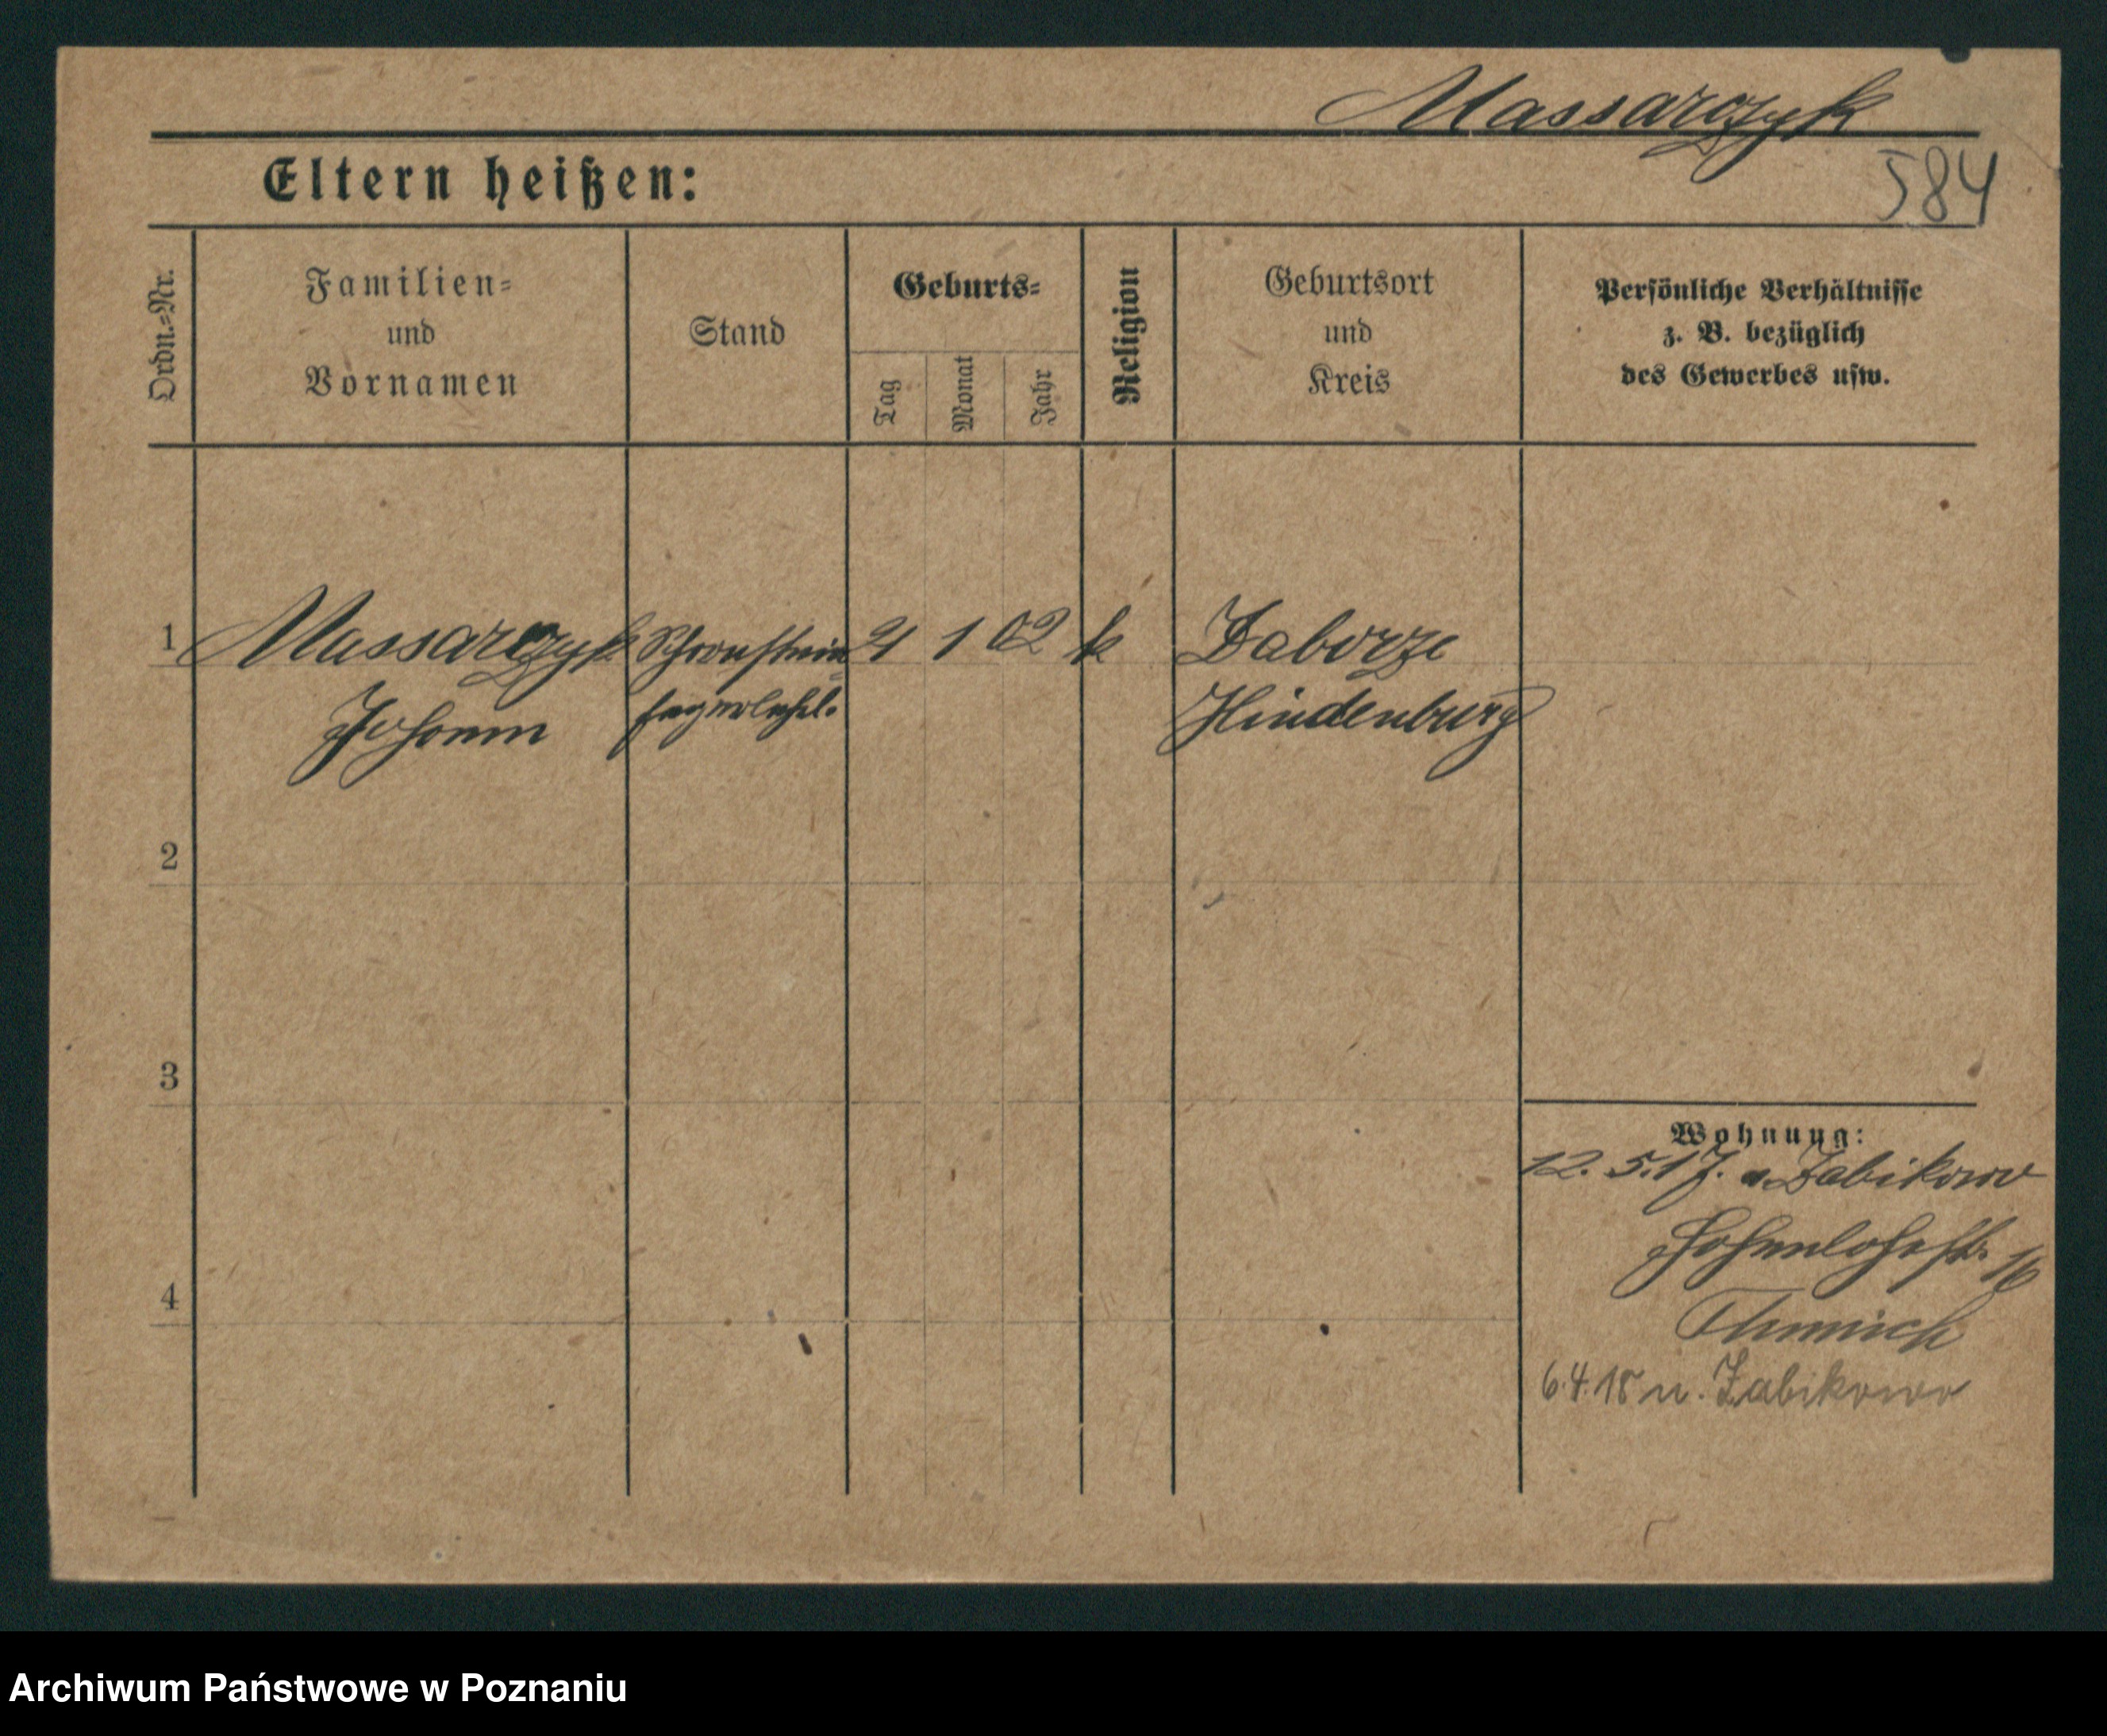 Massarczyk
Eltern heißen:
584
Ordn.=Nr.
Familien=
und
Vornamen
Stand
Geburts=
Tag
Monat
Jahr
Religion
Geburtsort
und
Kreis
Persönliche Verhältnisse
z. B. bezüglich
des Gewerbes usw.
1 Massarczyk Schornstein 21 1 02 k Zaborze
Johann fegerlehrl. Hindenburg
2
3
4
Wohnung:
12. 5. 17. a. Zabikowo
Hohenlohestr. 16
6.4.18 n. Zabikowo
Archiwum Państwowe w Poznaniu